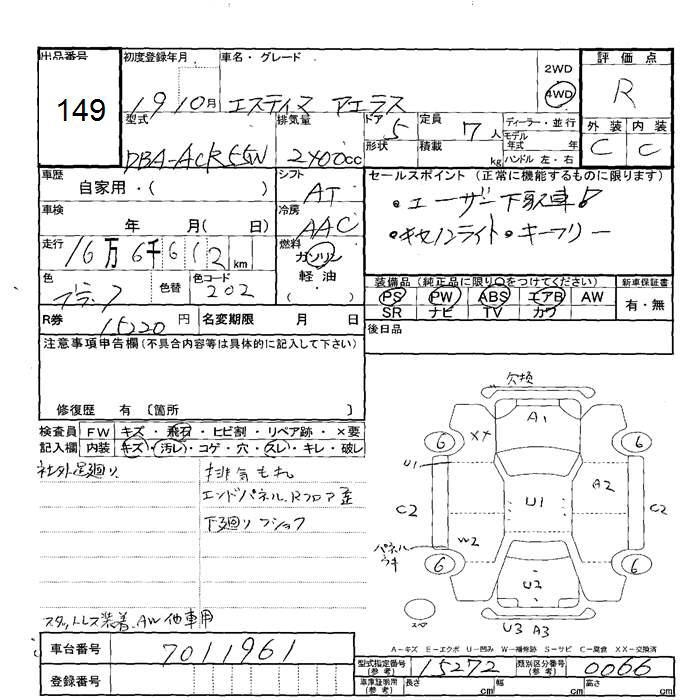 出品番号 初度登録年月 車名・グレード 2WD 評価点
149 19 10月 エスティマ アエラス 4WD R
型式 排気量 ドア 5 定員 7人 ディーラー・並行 外装 内装
DBA-ACR55W 2400cc 形状 積載 kg モデル年式 年 C C
ハンドル 左・右
車歴 シフト セールスポイント (正常に機能するものに限ります)
自家用・( ) AT ・ユーザー下取車!
車検 冷房 ・キセノンライト・キーフリー
年 月( 日) AAC
走行 16万6千612km 燃料 ガソリン 軽・油
色 ブラック 色替 色コード 202 装備品(純正品に限り○をつけてください) 新車保証書
PS PW ABS エアB AW 有・無
R券 15220円 名変期限 月 日 SR ナビ TV カワ
注意事項申告欄(不具合内容等は具体的に記入して下さい) 後日品
修復歴 有 〔箇所 〕
検査員 FW キズ・飛石・ヒビ割・リペア跡・×要
記入欄 内装 キズ・汚レ・コゲ・穴・スレ・キレ・破レ
社外足廻り 排気もれ
エンドパネル、Rフロア歪
下廻りフショク
スタットレス装着、AW他車用
欠損
A1
6 XX 6
U1 A2
C2 U1 C2
W2
パネルウキ 6 6
U2
スペア
U3 A3
A-キズ E-エクボ U-凹み W-補修跡 S-サビ C-腐食 XX-交換済
車台番号 7011961 型式指定番号(参考) 15272 類別区分番号(参考) 0066
登録番号 車庫証明用(参考) 長さ cm 幅 cm 高さ cm